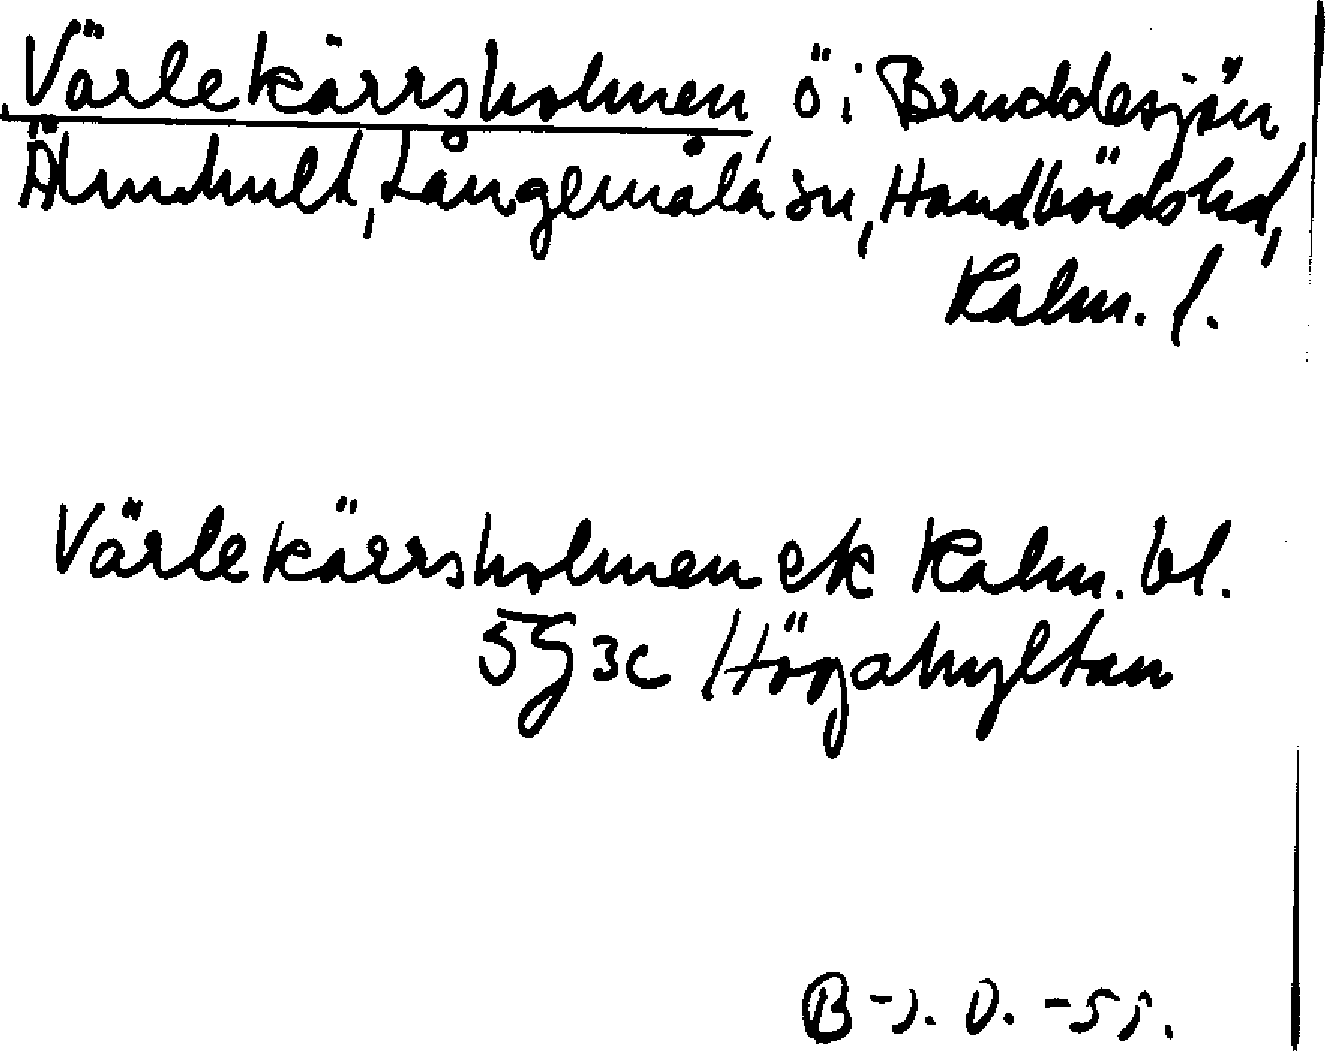 Värlekärrsholmen, ö i Bruddesjön
Älmhult, Långemåla sn, Handbörds hd,
Kalm. l.
Värlekärrsholmen ek Kalm. bl.
5G 3c Högahyltan
B-J. O. -55.